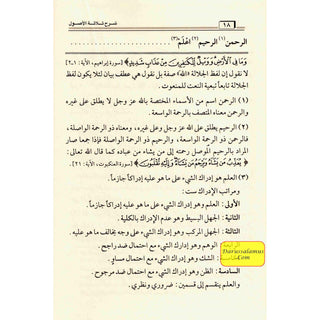 ١٨
شرح ثلاثة الأصول
الرحمن (١) الرحيم (٢) اعلم (٣) ..............................
وَمَا فِي الْأَرْضِ وَوَيْلٌ لِّلْكَافِرِينَ مِنْ عَذَابٍ شَدِيدٍ ﴾ (سورة إبراهيم، الآية: ١-٢)
لا نقول إن لفظ الجلالة «الله» صفة بل نقول هي عطف بيان لئلا يكون لفظ
الجلالة تابعاً تبعية النعت للمنعوت.
(١) الرحمن اسم من الأسماء المختصة بالله عز وجل لا يطلق على غيره
والرحمن معناه المتصف بالرحمة الواسعة.
(٢) الرحيم يطلق على الله عز وجل وعلى غيره، ومعناه ذو الرحمة الواصلة،
فالرحمن ذو الرحمة الواسعة، والرحيم ذو الرحمة الواصلة فإذا جمعا صار
المراد بالرحيم الموصل رحمته إلى من يشاء من عباده كما قال الله تعالى:
﴿ يُعَذِّبُ مَن يَشَاءُ وَيَرْحَمُ مَن يَشَاءُ وَإِلَيْهِ تُقْلَبُونَ ﴾ (سورة العنكبوت، الآية: ٢١).
(٣) العلم هو إدراك الشيء على ما هو عليه إدراكاً جازماً.
ومراتب الإدراك ست:
الأولى: العلم وهو إدراك الشيء على ما هو عليه إدراكاً جازماً.
الثانية: الجهل البسيط وهو عدم الإدراك بالكلية.
الثالثة: الجهل المركب وهو إدراك الشيء على وجه يخالف ما هو عليه.
الرابعة: الوهم وهو إدراك الشيء مع احتمال ضد راجح.
الشك وهو إدراك الشيء مع احتمال مساو.
السادسة: الظن وهو إدراك الشيء مع احتمال ضد مرجوح.
والعلم ينقسم إلى قسمين: ضروري ونظري.
Darussalamus
.Com